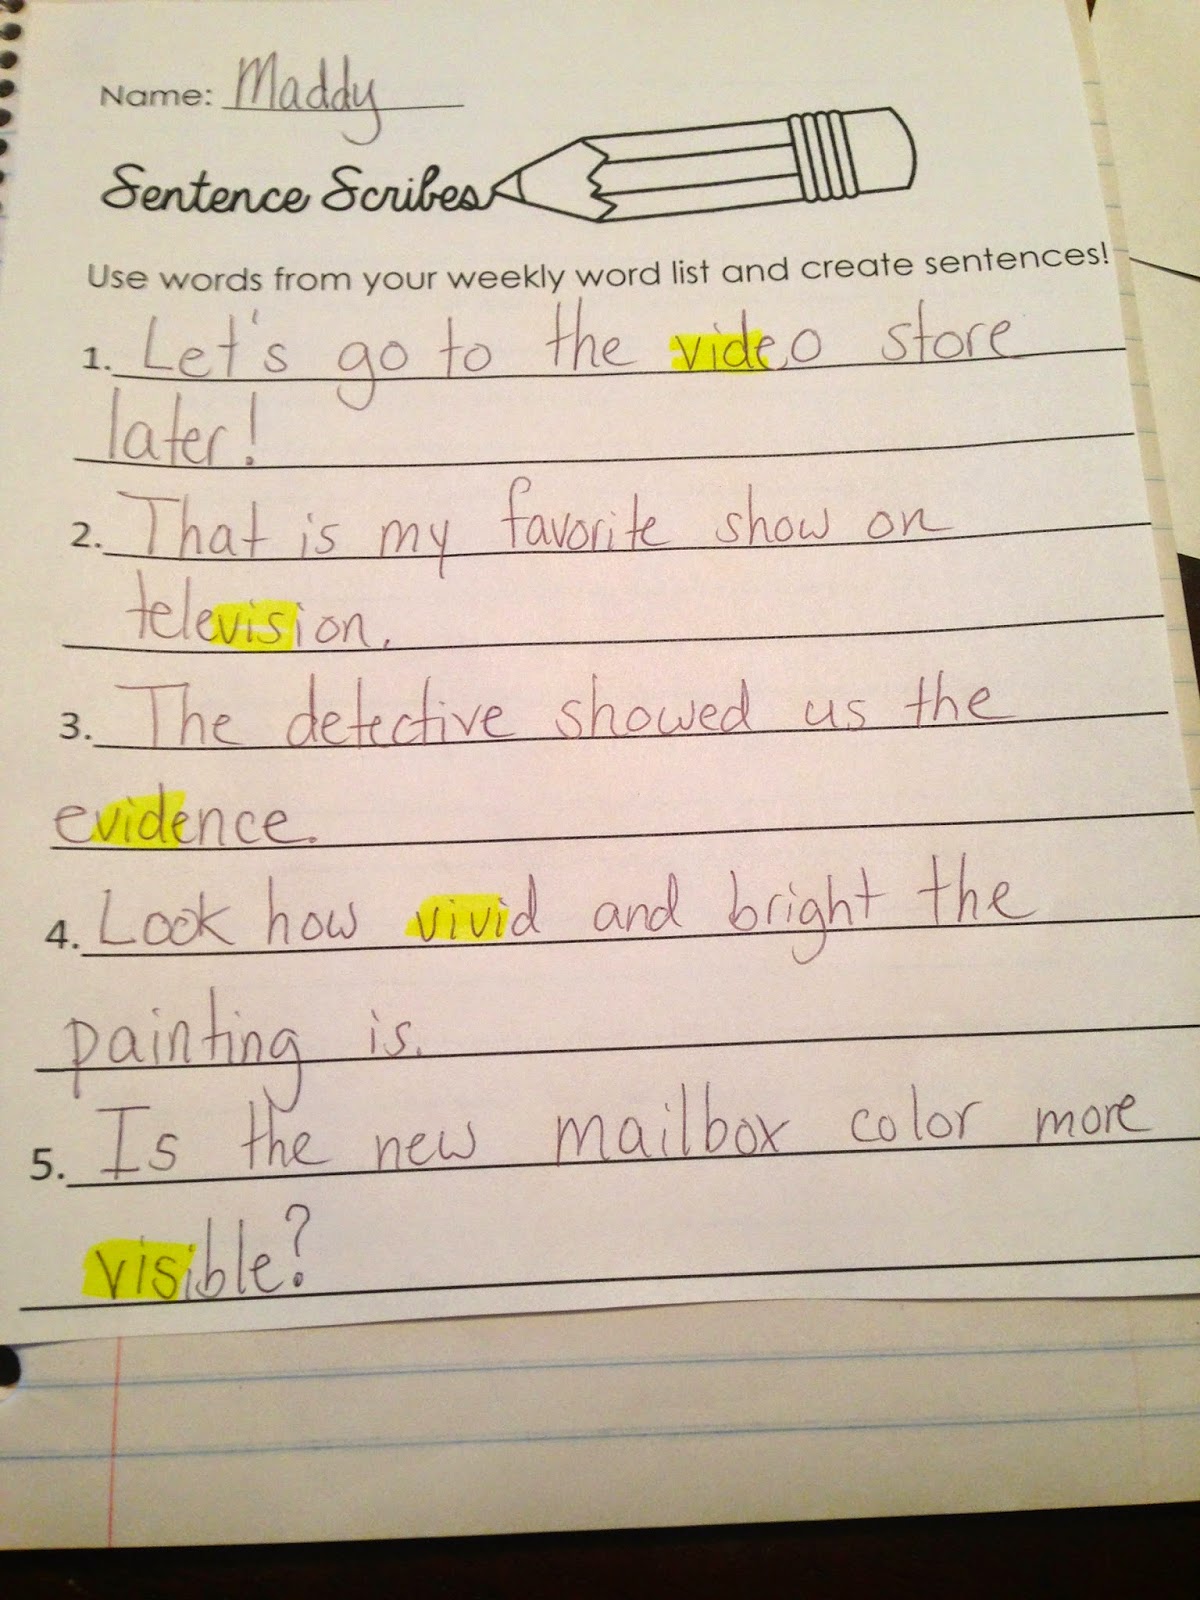 Name: Maddy
Sentence Scribes
Use words from your weekly word list and create sentences!
1. Let's go to the video store
later!
2. That is my favorite show on
television.
3. The detective showed us the
evidence.
4. Look how vivid and bright the
painting is.
5. Is the new mailbox color more
visible?